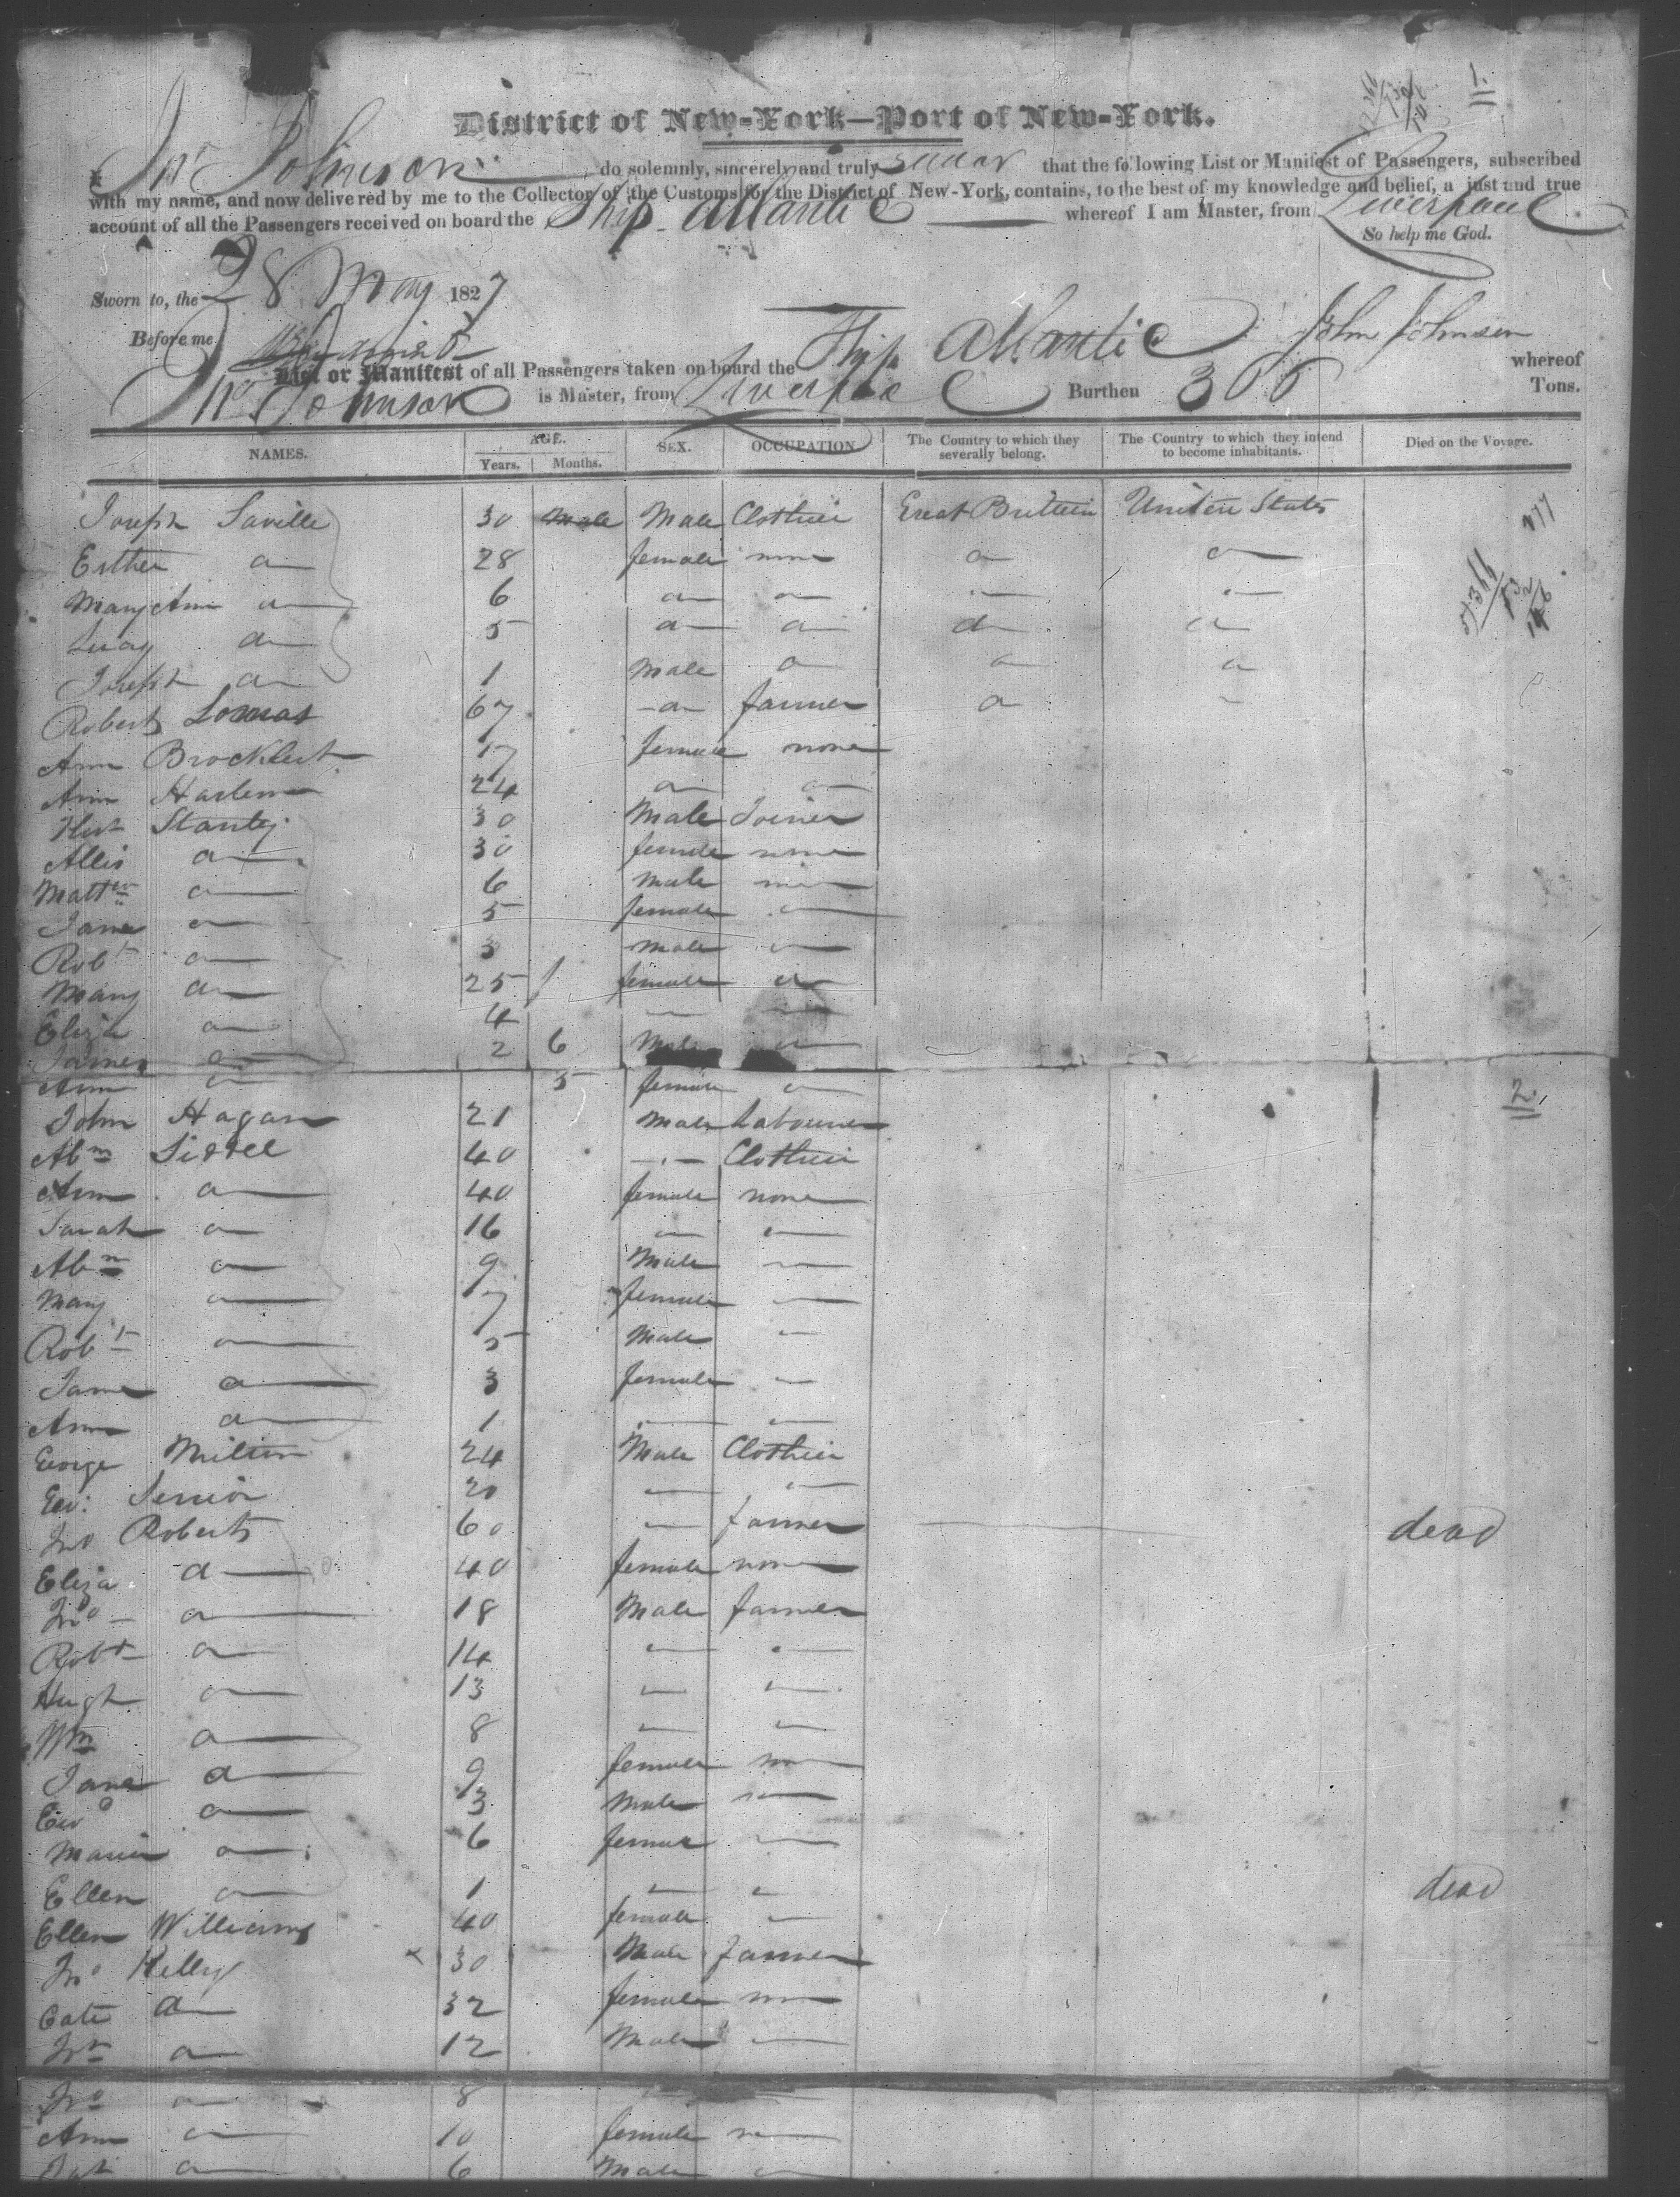 1.
District of New-York—Port of New-York.
I, Jno Johnson do solemnly, sincerely and truly swear that the following List or Manifest of Passengers, subscribed
with my name, and now delivered by me to the Collector of the Customs for the District of New-York, contains, to the best of my knowledge and belief, a just and true
account of all the Passengers received on board the Ship Atlantic whereof I am Master, from Liverpool
So help me God.
Sworn to, the 28 May 1827
Before me John Johnson
List or Manifest of all Passengers taken on board the Ship Atlantic whereof
Jno Johnson is Master, from Liverpool Burthen 366 Tons.
NAMES. AGE. Years. Months. SEX. OCCUPATION The Country to which they severally belong. The Country to which they intend to become inhabitants. Died on the Voyage.
Joseph Saville 30 Male Male Clothier Great Brittain United States
Esther do 28 female none do do
Mary Ann do 6 do do
Lucy do 5 do do do do
Joseph do 1 Male do do do
Robert Lomas 67 do farmer do
Ann Brocklest 17 female none
Ann 24 do do
Stanley 30 Male Joiner
Allis do 30 female none
Mattw do 6 male
Jane do 5 female
Robt do 3 male
Mary do 25 female do
Eliza do 4
James do 2 6 Male
Ann do 5 female
2.
John Hagan 21 Male Labourer
Abm 40 Clothier
Ann do 40 female none
Sarah do 16
Abm do 9 Male
Mary do 7 female
Robt do 5 Male
Jane do 3 female
Ann do 1
George Milton 24 Male Clothier
Ed: Senior 20
Jno Roberts 60 farmer dead
Eliza do 40 female none
Jno do 18 Male farmer
Robt do 14
Hugh do 13
Wm do 8
Jane do 9 female
Edwd do 3 Male
Maria do 6 female
Ellen do 1 dead
Ellen Williams 40 female
Jno Kelly 30 Male farmer
Cate do 32 female
do 12 Male
Jno do 8
Ann do 10 female
do 6 Male